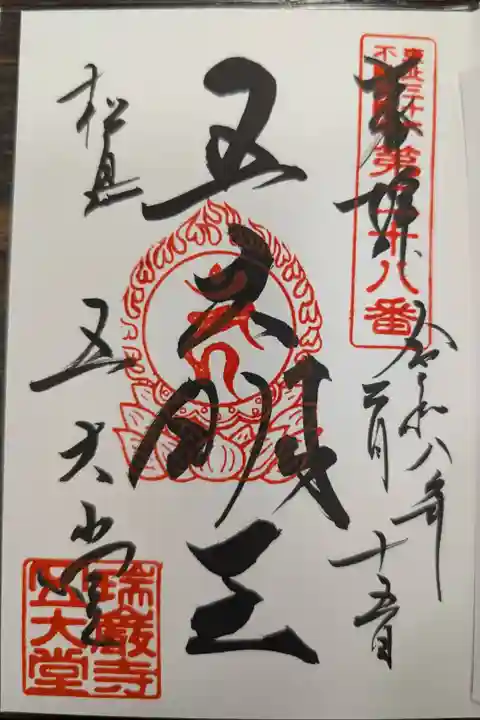 奉拝
東北三十六
不動尊第二十八番
令和八年
二月
十五日
五大明王
松島
五大堂
瑞巌寺
五大堂